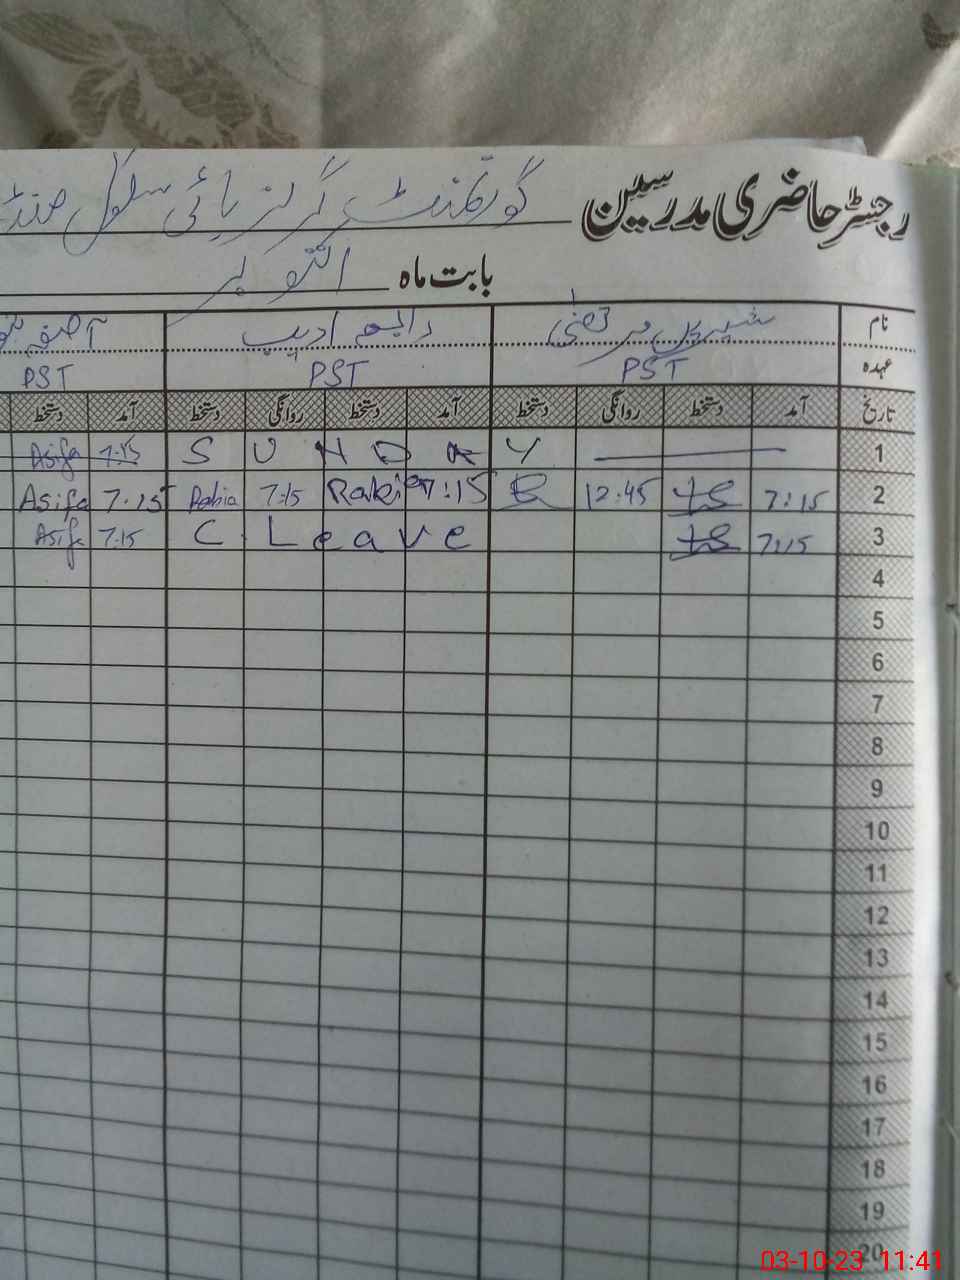 رجسٹر حاضری مدرسین گورنمنٹ گرلز ہائی سکول
بابت ماہ اکتوبر
نام شیریں مرتضیٰ رابعہ ادیب آصفہ
عہدہ PST PST PST
تاریخ آمد دستخط روانگی دستخط آمد دستخط روانگی دستخط آمد دستخط
1 S U N D A Y 7:15 Asifa
2 7:15 12:45 7:15 Rabia 7:15 Rabia 7:15 Asifa
3 7:15 C Leave 7:15 Asifa
4
5
6
7
8
9
10
11
12
13
14
15
16
17
18
19
20
03-10-23 11:41